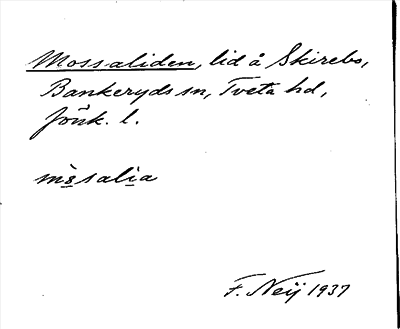 Mossaliden, lid å Skirebo,
Bankeryds sn, Tveta hd,
Jönk. l.
F. Neij 1937